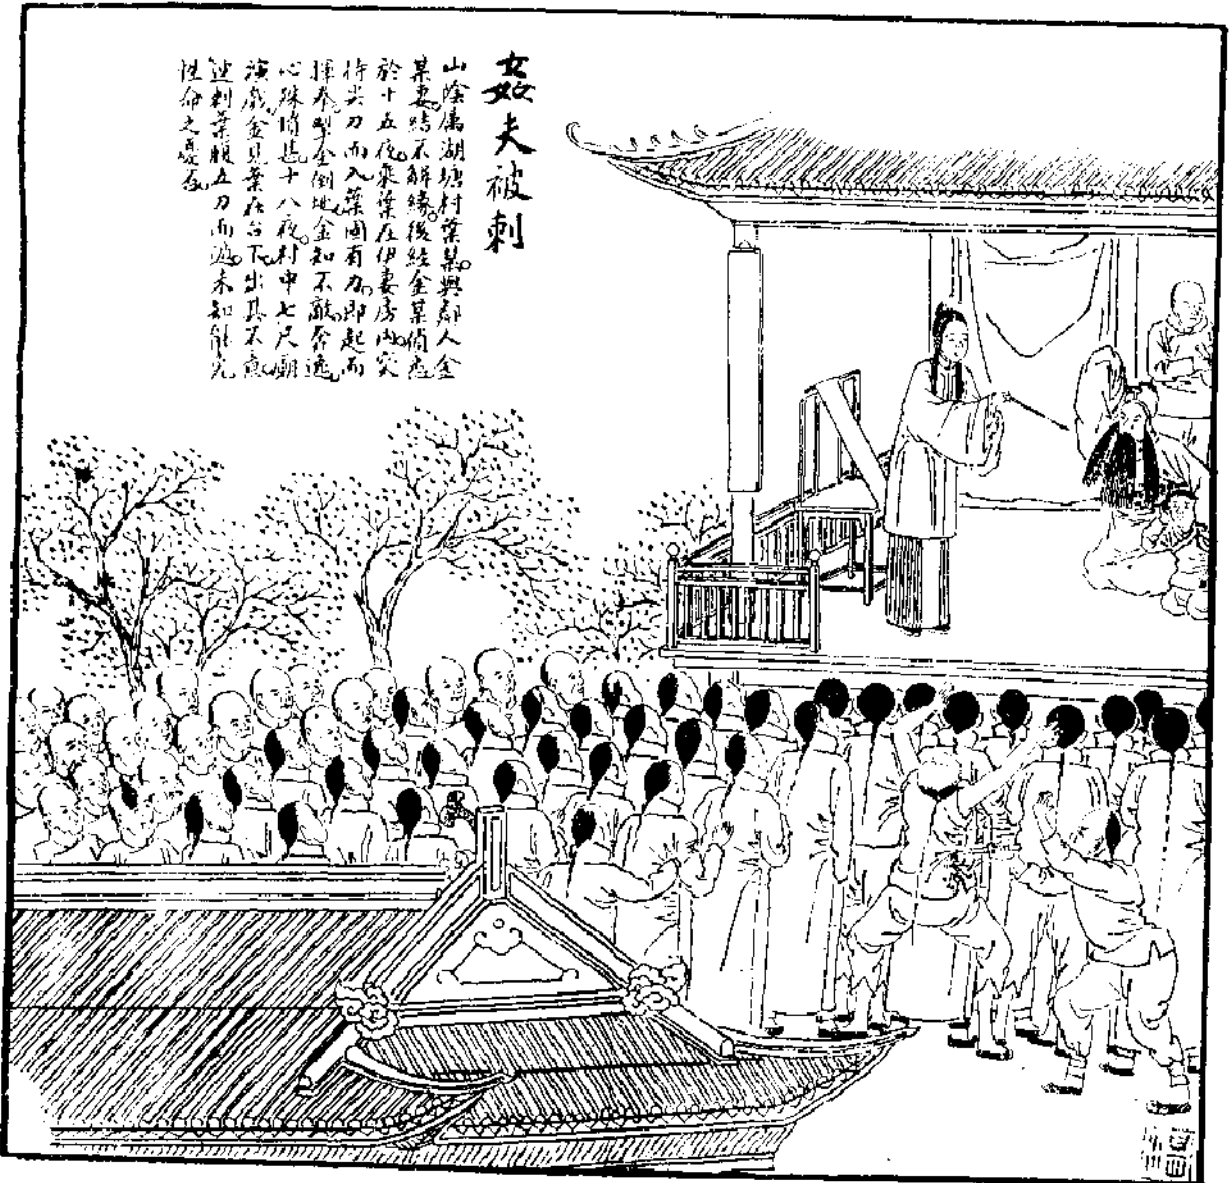 姦夫被刺
山陰属湖塘村葉某與鄰人金
某妻結不解緣後經金某偵悉
於十五夜乘葉在伊妻房內突
持尖刀而入葉固有力即起而
揮拳擊金倒地金知不敵奔逸
心殊憤甚十八夜村中七尺廟
演戲金見葉在台下出其不意
連刺葉腹五刀而逃未知能免
性命之憂否